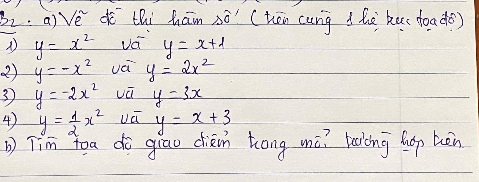 B2. a) Vẽ đồ thị hàm số (trên cùng 1 hệ trục tọa độ)
1) y = x² và y = x+1
2) y = -x² và y = 2x²
3) y = -2x² và y = 3x
4) y = 1/2 x² và y = x + 3
b) Tìm tọa độ giao điểm trong mỗi trường hợp trên.